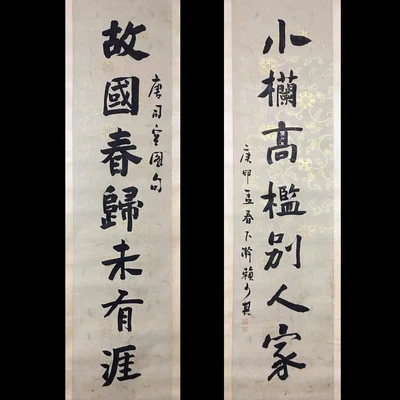 故國春歸未有涯
唐司空圖句
小欄高檻別人家
庚申孟春下澣賴少其